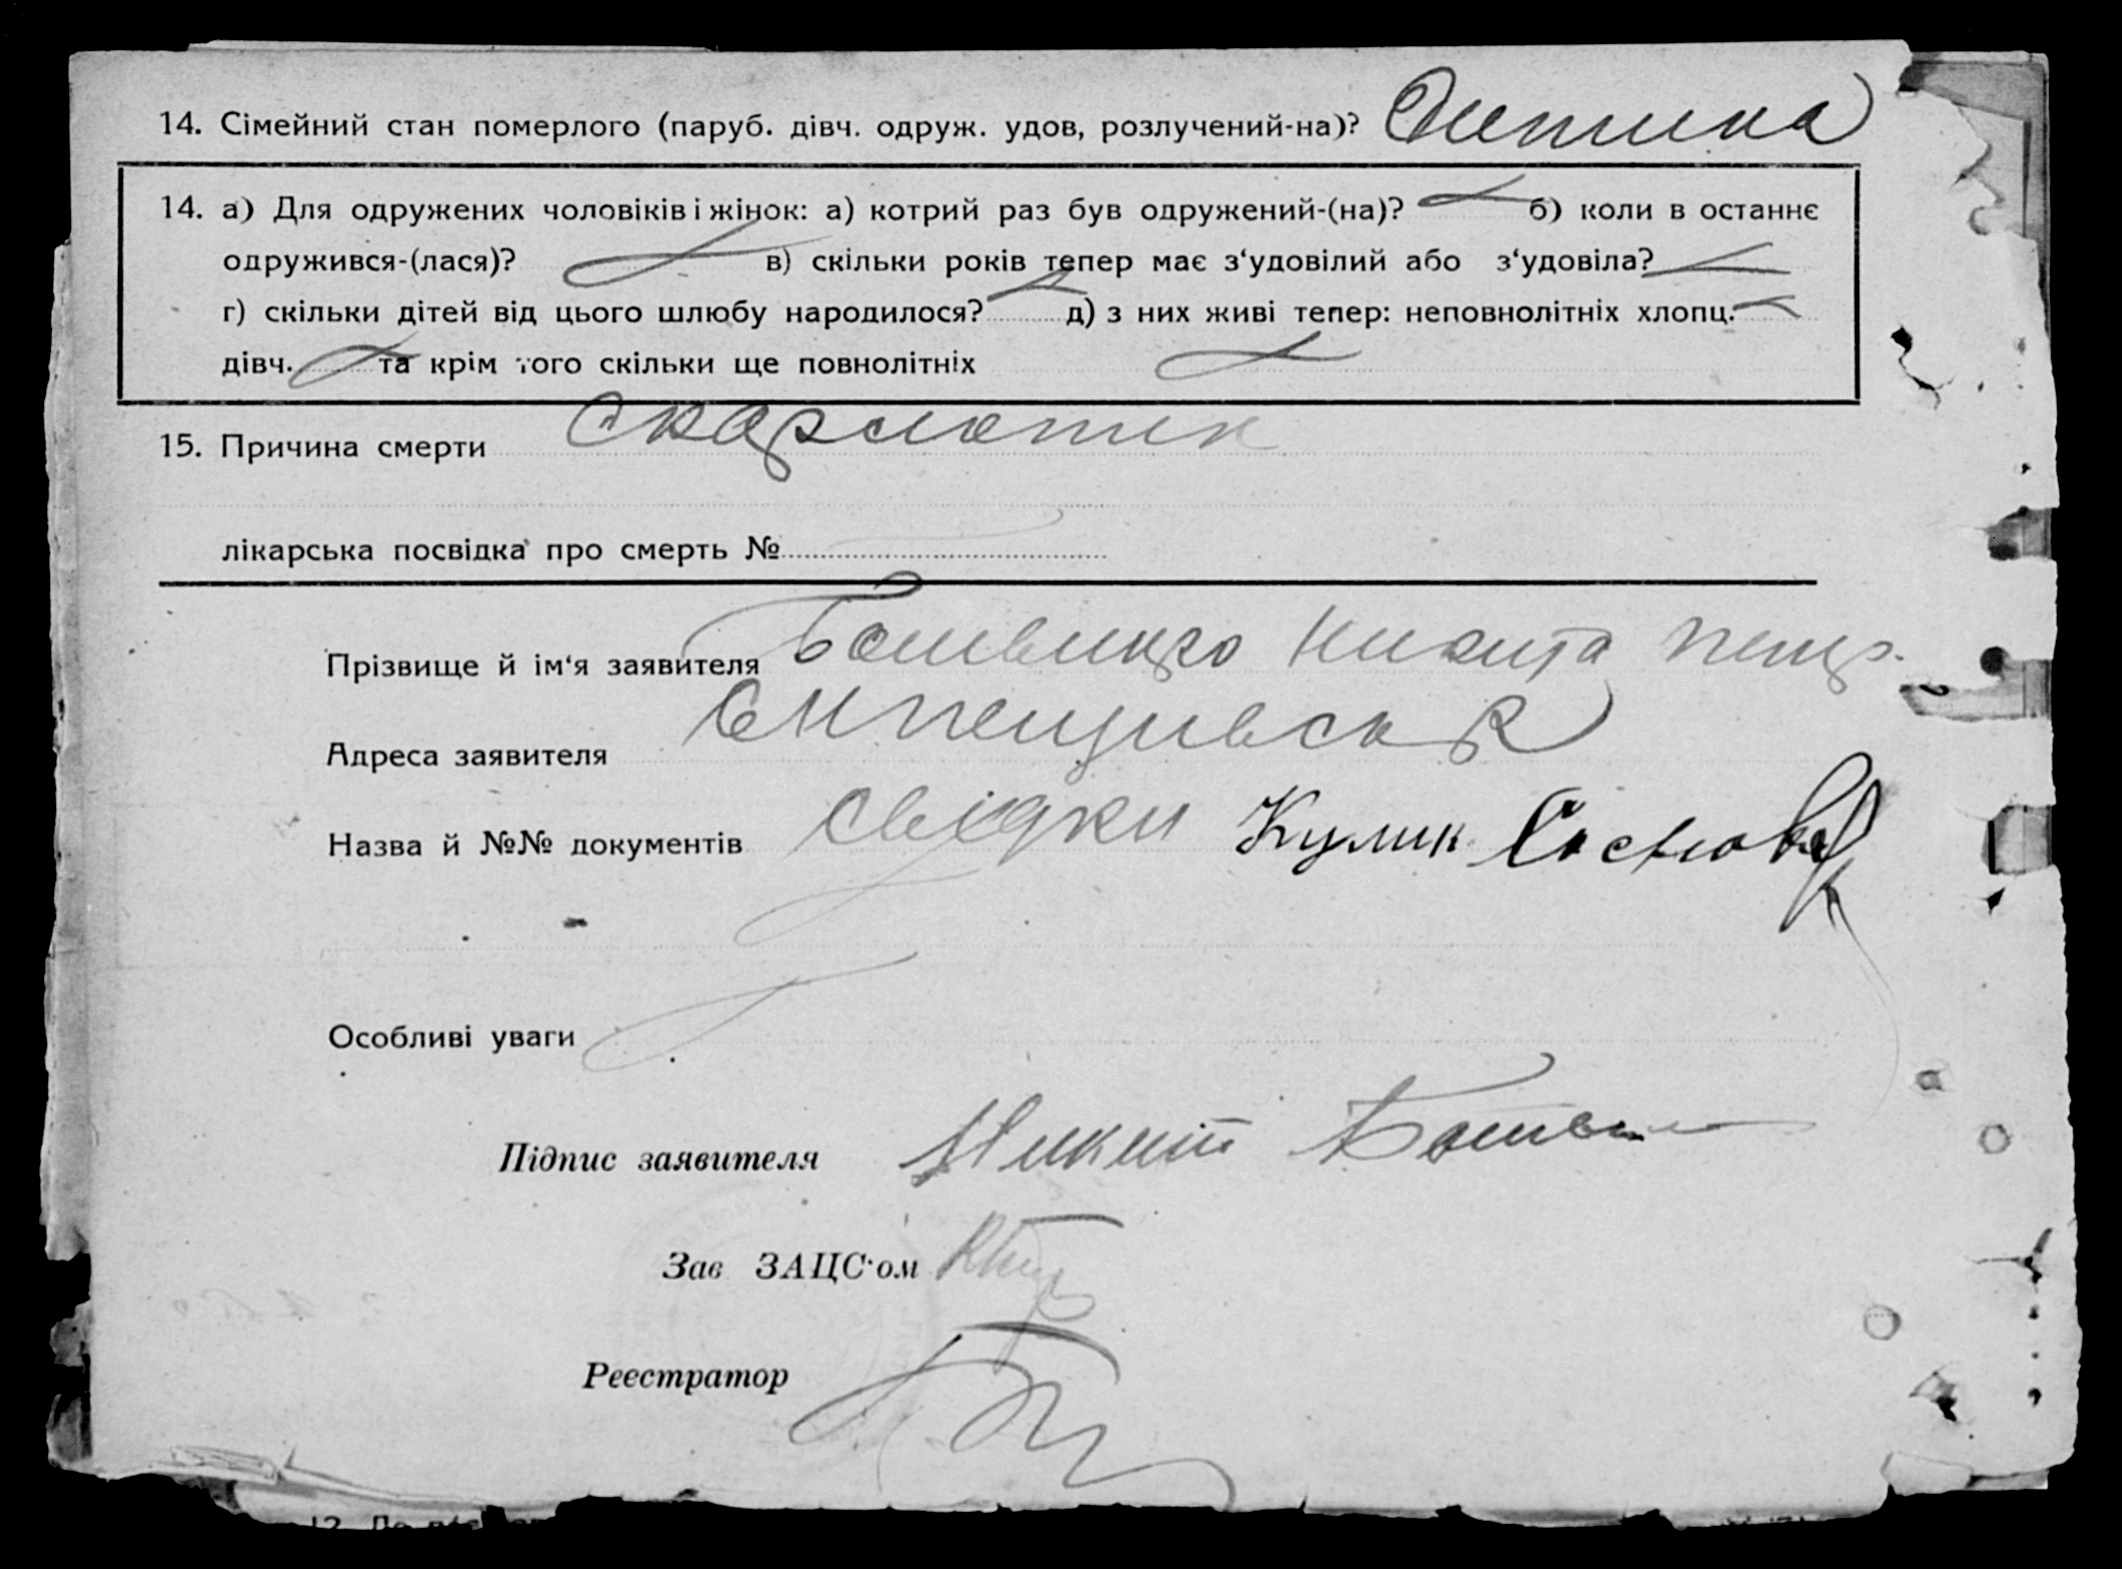 14. Сімейний стан померлого (паруб. дівч. одруж. удов, розлучений-на)? Дитина
14. а) Для одружених чоловіків і жінок: а) котрий раз був одружений-(на)? б) коли в останнє
одружився-(лася)? в) скільки років тепер має з‘удовілий або з‘удовіла?
г) скільки дітей від цього шлюбу народилося? д) з них живі тепер: неповнолітніх хлопц.
дівч. та крім того скільки ще повнолітніх
15. Причина смерти Скарлотин
лікарська посвідка про смерть №
Прізвище й ім‘я заявителя Никита
Адреса заявителя
Назва й №№ документів свідки Кулик
Особливі уваги
Підпис заявителя Никит
Зав ЗАЦС·ом
Реєстратор